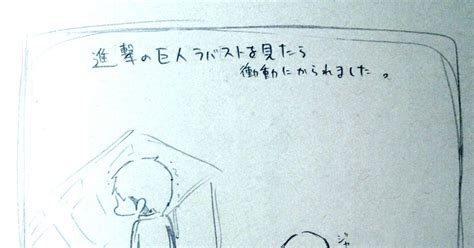 進撃の巨人ラバストを見たら
衝動にかられました。
ジャ